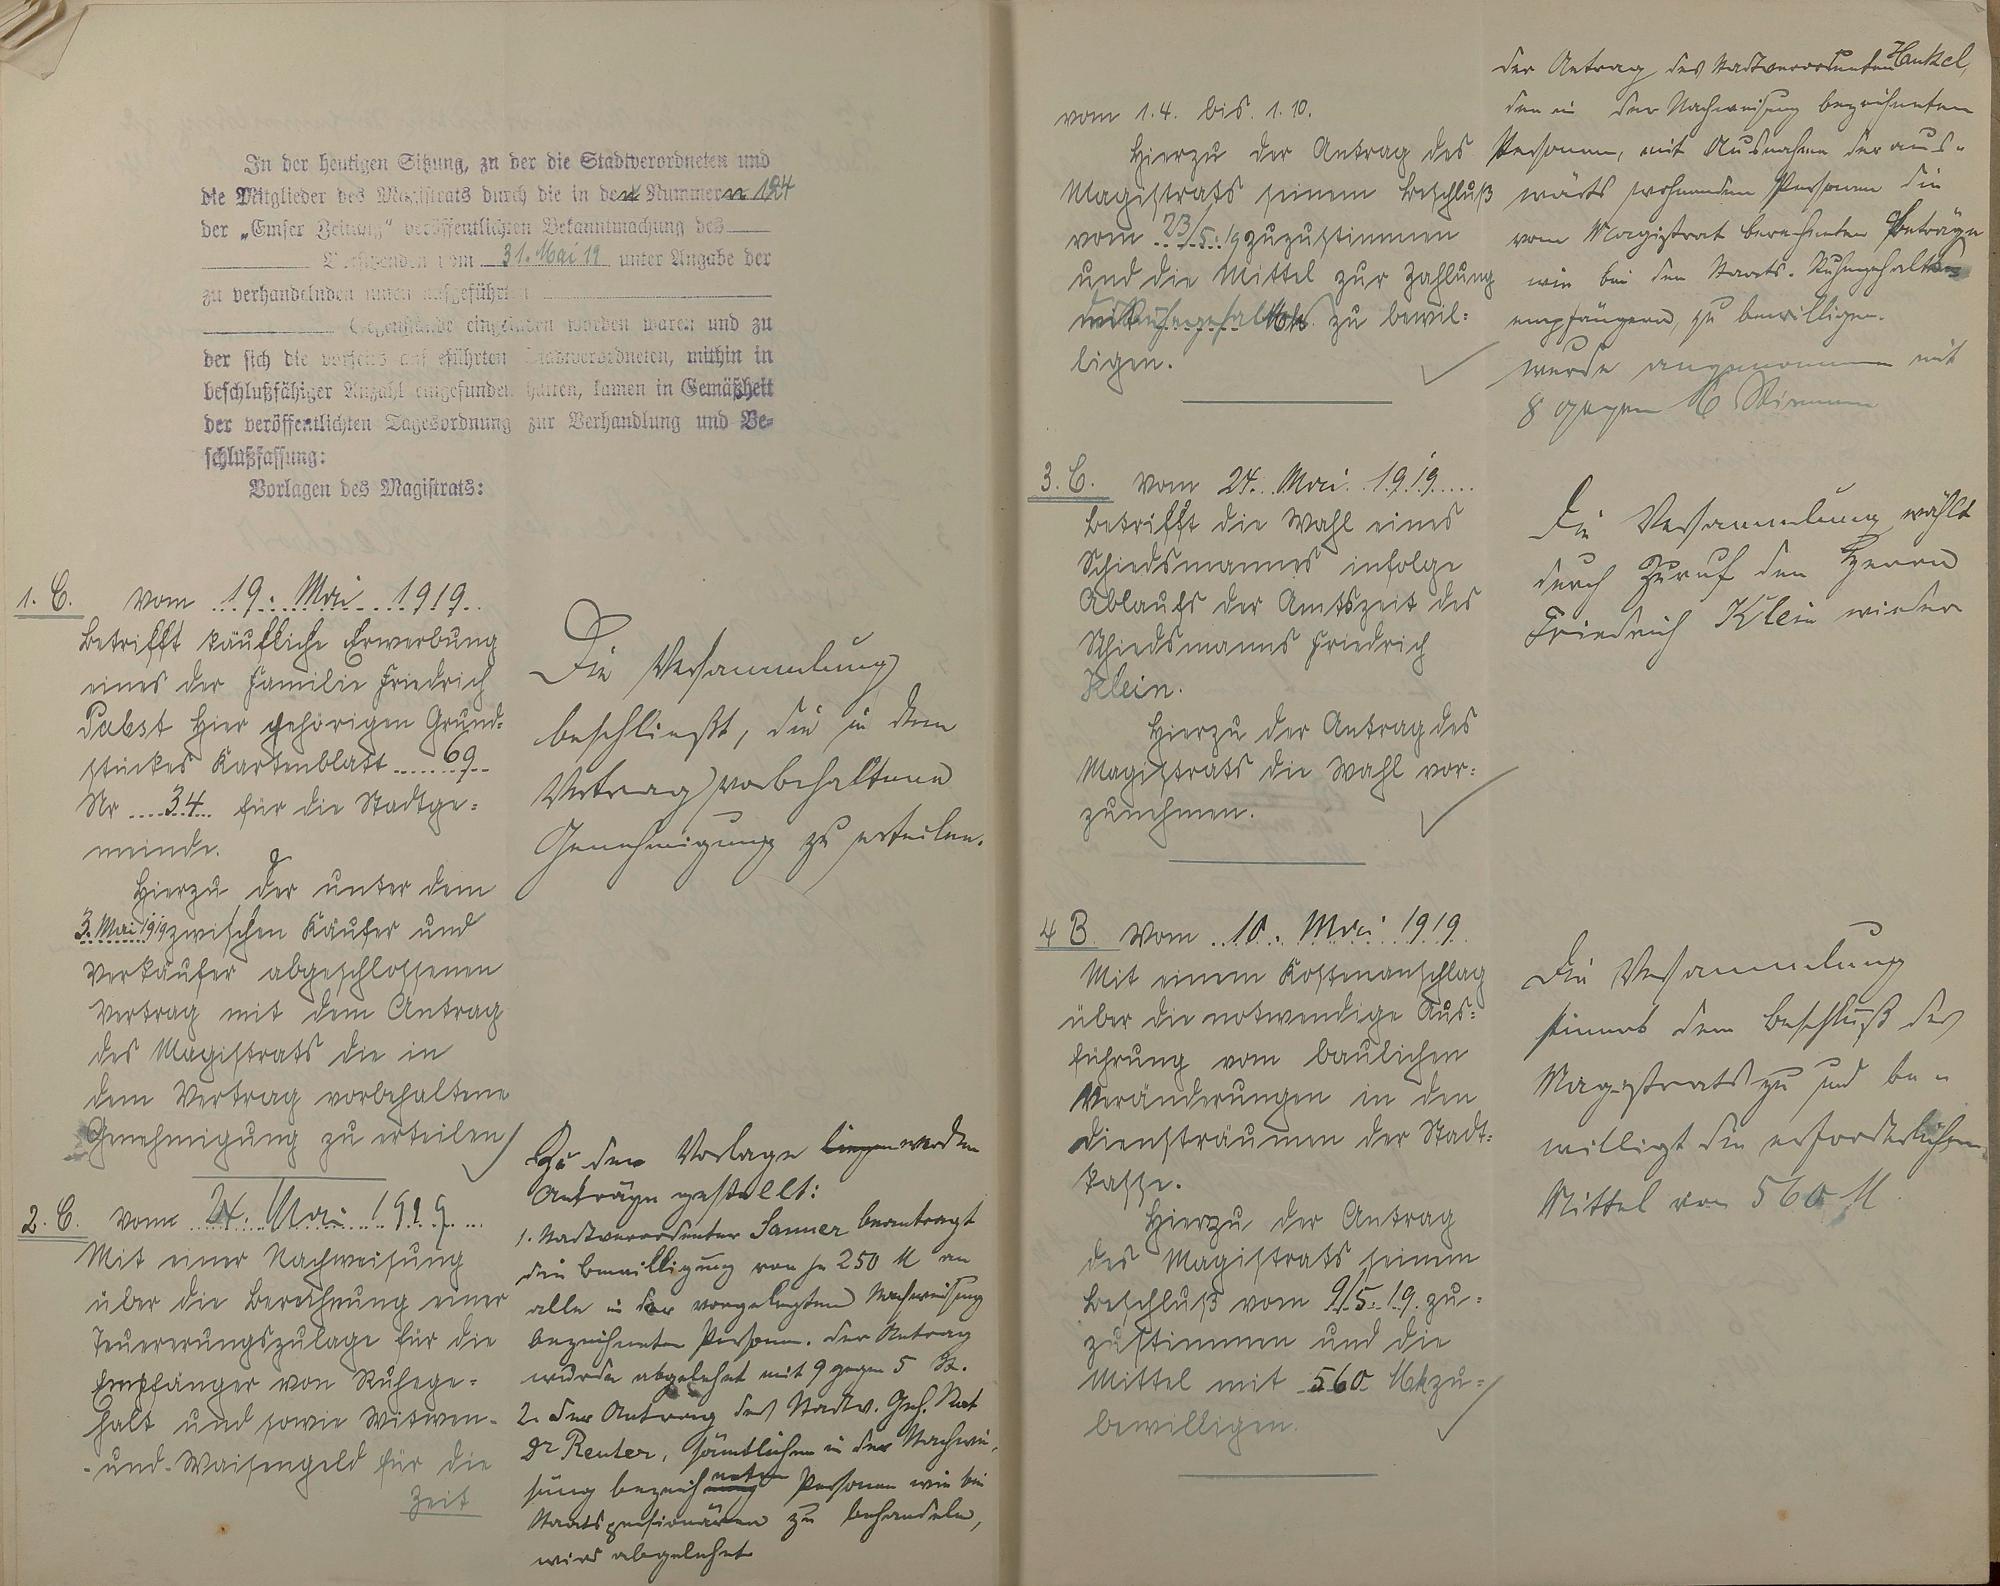 In der heutigen Sitzung, zu der die Stadtverordneten und
die Mitglieder des Magistrats durch die in den Nummern 124
der „Emser Zeitung“ veröffentlichten Bekanntmachung des
Vorsitzenden vom 31. Mai 19 unter Angabe der
zu verhandelnden unten aufgeführten
Gegenstände eingeladen worden waren und zu
der sich die vorseits aufgeführten Stadtverordneten, mithin in
beschlußfähiger Anzahl eingefunden hatten, kamen in Gemäßheit
der veröffentlichten Tagesordnung zur Verhandlung und Be-
schlußfassung:
Vorlagen des Magistrats:
1. C. vom 19. Mai 1919.
Betrifft käufliche Erwerbung
eines der Familie Friedrich
Pabst hier gehörigen Grund-
stückes Kartenblatt 69
Nr 34 für die Stadtge-
meinde.
Hierzu der unter dem
3. Mai 1919 zwischen Käufer und
Verkäufer abgeschlossenen
Vertrag mit dem Antrag
des Magistrats die in
dem Vertrag vorbehaltene
Genehmigung zu erteilen
Die Versammlung
beschließt, die in dem
Vertrag vorbehaltene
Genehmigung zu erteilen.
2. C. vom 24. Mai 1919
Mit einer Nachweisung
über die Berechnung einer
Teuererungszulage für die
Empfänger von Ruhege-
halt und sowie Witwen-
und Waisengeld für die
Zeit
Zu der Vorlage liegen werden
Anträge gestellt:
1. Stadtverordneter Sanner beantragt
die Bewilligung von je 250 M an
alle in der vorgelegten Nachweisung
bezeichneten Personen. Der Antrag
wurde abgelehnt mit 9 gegen 5 St.
2. Der Antrag des Stadtv. Geh. Rat
Dr Reuter, sämtlichen in der Nachwei-
sung bezeichneten Personen wie bei
Staatspensionären zu behandeln,
wird abgelehnt
vom 1.4. bis. 1.10.
Hierzu der Antrag des
Magistrats seinem Beschluß
vom 23/5. 19 zuzustimmen
und die Mittel zur Zahlung
zu bewil-
ligen.
der Antrag des Stadtverordneten Henkel,
den in der Nachweisung bezeichneten
Personen, mit Ausnahme der aus-
wärts wohnenden Personen die
vom Magistrat berechneten Beträge
wie bei den Staats-Ruhegehalts-
empfängern, zu bewilligen.
wurde angenommen mit
8 gegen 6 Stimmen
3. C. vom 24. Mai 1919
Betrifft die Wahl eines
Schiedsmannes infolge
Ablaufs der Amtszeit des
Schiedsmanns Friedrich
Klein.
Hierzu der Antrag des
Magistrats die Wahl vor-
zunehmen.
Die Versammlung wählt
durch Zuruf den Herrn
Friedrich Klein wieder
4 B. vom 10. Mai 1919
Mit einem Kostenanschlag
über die notwendige Aus-
führung vom baulichen
Veränderungen in den
Diensträumen der Stadt-
kasse.
Hierzu der Antrag
des Magistrats seinem
Beschluß vom 9/5. 19. zu-
zustimmen und die
Mittel mit 560 Mk zu-
bewilligen.
Die Versammlung
stimmt dem Beschluß des
Magistrats zu und be-
willigt die erforderlichen
Mittel von 560 M